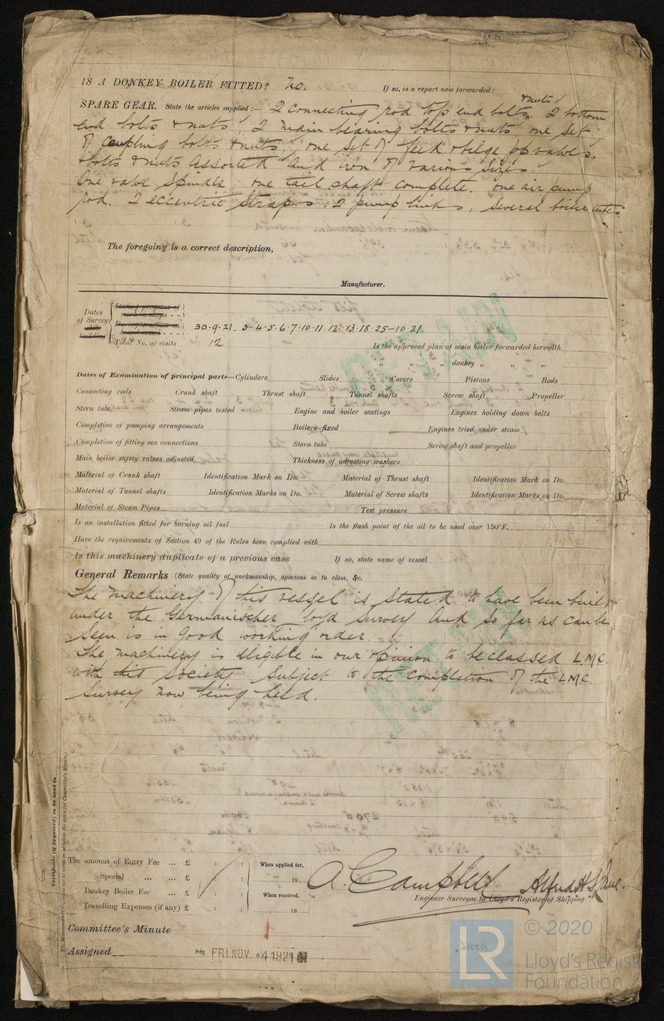 IS A DONKEY BOILER FITTED? no. If so, is a report now forwarded:
SPARE GEAR. State the articles supplied:— 2 connecting rod top end bolts & nuts 2 bottom
end bolts & nuts, 2 main bearing bolts & nuts one set
of coupling bolts & nuts, one set of feed & bilge pp valves.
bolts & nuts assorted and iron of various sizes.
One valve spindle, one tail shaft complete. one air pump
rod. 2 eccentric straps, 2 pump links, several boiler tubes
The foregoing is a correct description,
Manufacturer.
Dates of Survey 30-9-21. 3-4-5-6-7-10-11-12-13-18-25-10-21.
Total No. of visits 12
Is the approved plan of main boiler forwarded herewith
" " " donkey " " "
Dates of Examination of principal parts—Cylinders Slides Covers Pistons Rods
Connecting rods Crank shaft Thrust shaft Tunnel shafts Screw shaft Propeller
Stern tube Steam pipes tested Engine and boiler seatings Engines holding down bolts
Completion of pumping arrangements Boilers fixed Engines tried under steam
Completion of fitting sea connections Stern tube Screw shaft and propeller
Main boiler safety valves adjusted Thickness of adjusting washers
Material of Crank shaft Identification Mark on Do. Material of Thrust shaft Identification Mark on Do.
Material of Tunnel shafts Identification Marks on Do. Material of Screw shafts Identification Marks on Do.
Material of Steam Pipes Test pressure
Is an installation fitted for burning oil fuel Is the flash point of the oil to be used over 150°F.
Have the requirements of Section 49 of the Rules been complied with
Is this machinery duplicate of a previous case If so, state name of vessel
General Remarks (State quality of workmanship, opinions as to class, &c.
The machinery of this vessel is stated to have been built
under the Germanischer Loyd Survey and so far as can be
seen is in good working order.
The machinery is eligible in our opinion to be classed L.M.C.
with this Society subject to the completion of the L.M.C.
Survey now being held.
The amount of Entry Fee ... £ : : When applied for,
Special ... £ : : 19
Donkey Boiler Fee ... £ : : When received,
Travelling Expenses (if any) £ : : 19
A. Campbell
Engineer Surveyor to Lloyd's Register of Shipping.
Committee's Minute
Assigned FRI. NOV. 4 1921
© 2020
LR
Lloyd's Register
Foundation